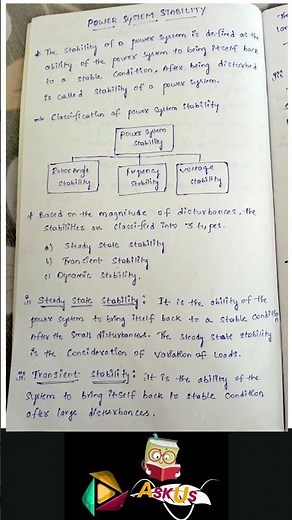 POWER SYSTEM STABILITY
* The stability of a power system is defined as the
ability of the power system to being itself back
to a stable Condition, After being disturbed
is called stability of a power system.
→ Classification of power system stability
Power System
Stability
Rotor Angle
Stability
Frequency
Stability
Voltage
Stability
* Based on the magnitude of disturbances, the
Stabilities are Classified into 3 types.
a) Steady state stability
b) Transient Stability
c) Dynamic Stability.
i: Steady State Stability: It is the ability of the
power system to bring itself back to a stable Condition
After the Small disturbances. The steady state stability
is the Consideration of variation of Loads.
ii: Transient Stability: It is the ability of the
System to bring itself back to stable Condition
after large disturbances.
ASK US